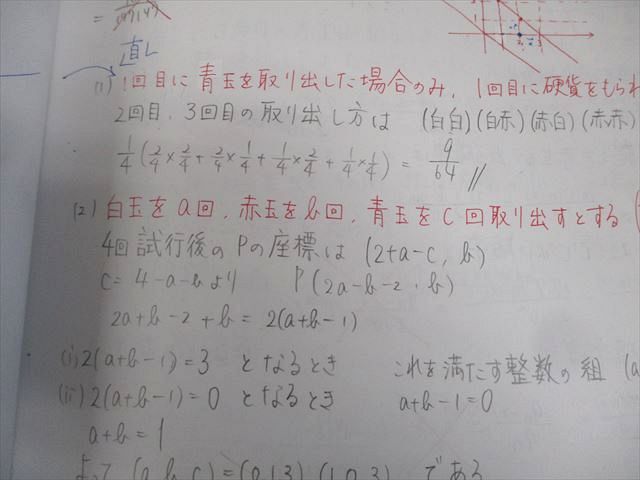 直し
(1) 1回目に青玉を取り出した場合のみ、1回目に硬貨をもら
2回目、3回目の取り出し方は (白白)(白赤)(赤白)(赤赤)
1/4 (2/4×2/4+2/4×1/4+1/4×2/4+1/4×1/4) = 9/64 //
(2) 白玉をa回、赤玉をb回、青玉をc回取り出すとする (
4回試行後のPの座標は (2+a-c, b)
c = 4-a-bより P(2a-b-2, b)
2a+b-2+b = 2(a+b-1)
(i) 2(a+b-1)=3 となるとき これを満たす整数の組 (a
(ii) 2(a+b-1)=0 となるとき a+b-1=0
a+b=1
よって (a,b,c)=(0,1,3),(1,0,3) である